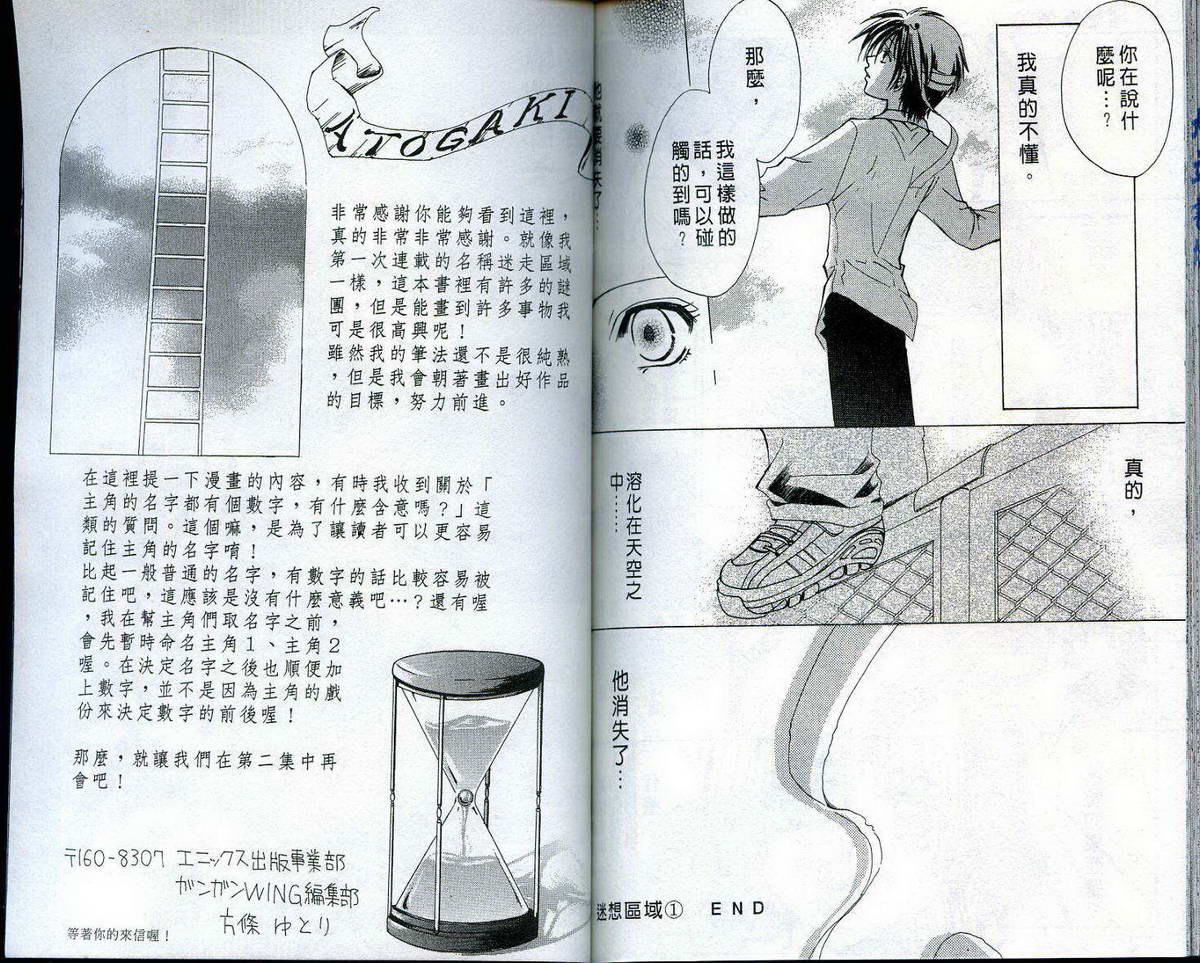 你在說什
麼呢…？
我真的不懂。
那麼，
我這樣做的
話，可以碰
觸的到嗎？
真的，
溶化在天空之
中……
他消失了…
迷想區域① END
ATOGAKI
非常感謝你能夠看到這裡，
真的非常非常感謝。就像我
第一次連載的名稱迷走區域
一樣，這本書裡有許多的謎
團，但是能畫到許多事物我
可是很高興呢！
雖然我的筆法還不是很純熟
，但是我會朝著畫出好作品
的目標，努力前進。
在這裡提一下漫畫的內容，有時我收到關於「
主角的名字都有個數字，有什麼含意嗎？」這
類的質問。這個嘛，是為了讓讀者可以更容易
記住主角的名字唷！
比起一般普通的名字，有數字的話比較容易被
記住吧，這應該是沒有什麼意義吧…？還有喔
，我在幫主角們取名字之前，
會先暫時命名主角１、主角２
喔。在決定名字之後也順便加
上數字，並不是因為主角的戲
份來決定數字的前後喔！
那麼，就讓我們在第二集中再
會吧！
〒160-8307 エニックス出版事業部
ガンガンWING編集部
方條 ゆとり
等著你的來信喔！